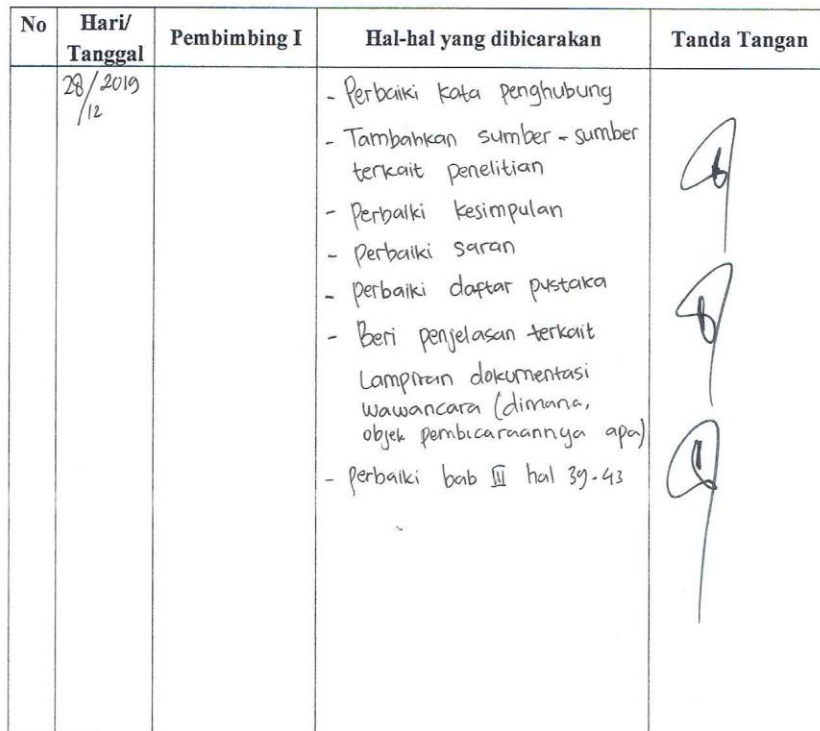 No Hari/ Tanggal Pembimbing I Hal-hal yang dibicarakan Tanda Tangan
28/12 2019
- Perbaiki kata penghubung
- Tambahkan sumber-sumber
terkait penelitian
- Perbaiki kesimpulan
- Perbaiki saran
- perbaiki daftar pustaka
- Beri penjelasan terkait
Lampiran dokumentasi
wawancara (dimana,
objek pembicaraannya apa)
- perbaiki bab III hal 39-43